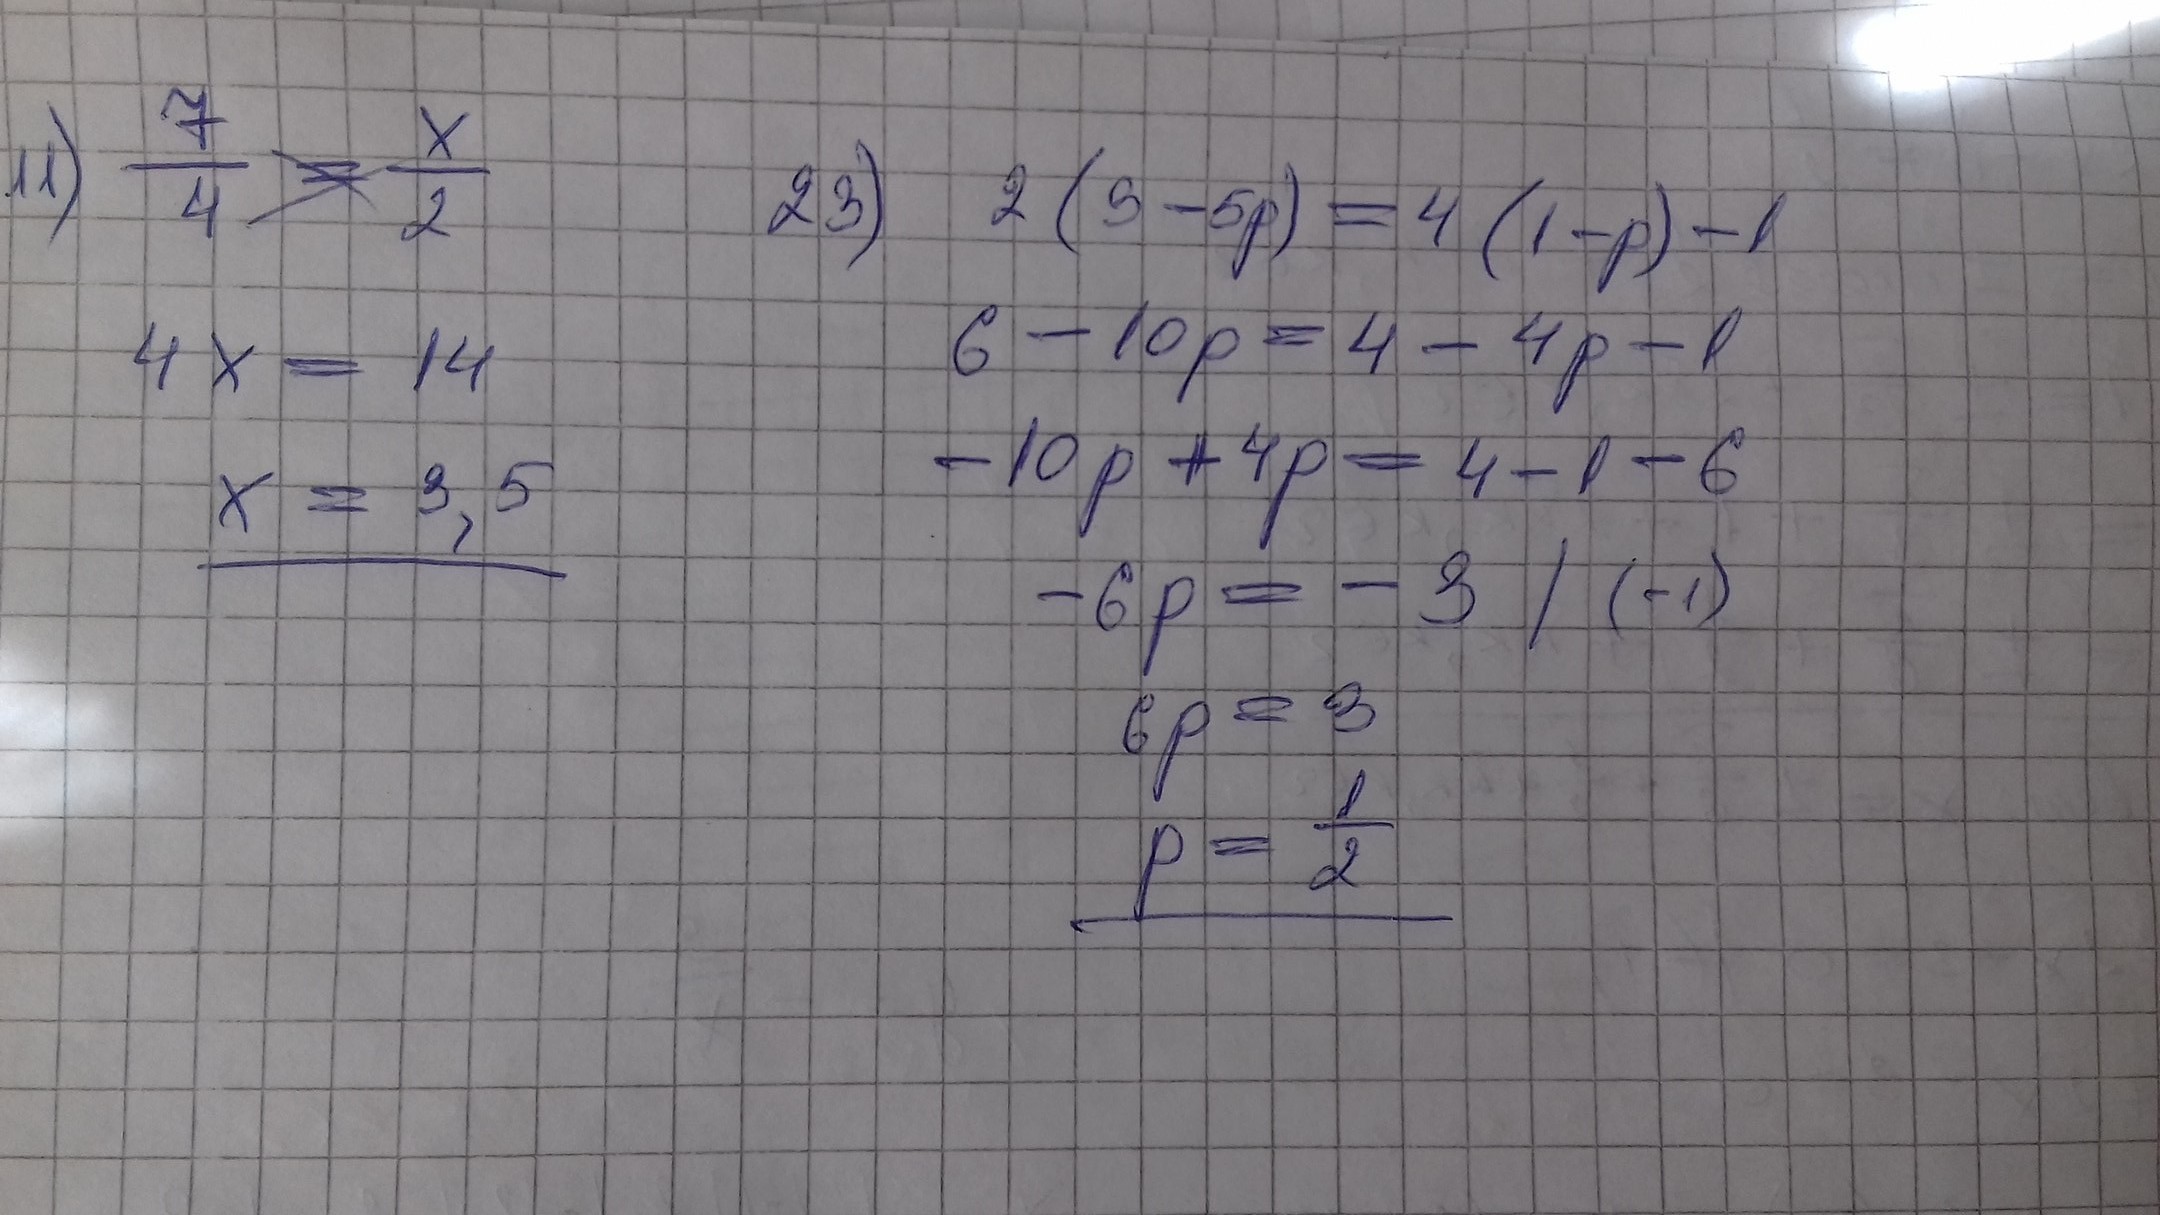 11) 7/4 = x/2
4x = 14
x = 3,5
23) 2(3-5p) = 4(1-p)-1
6-10p = 4-4p-1
-10p+4p = 4-1-6
-6p = -3 / (-1)
6p = 3
p = 1/2